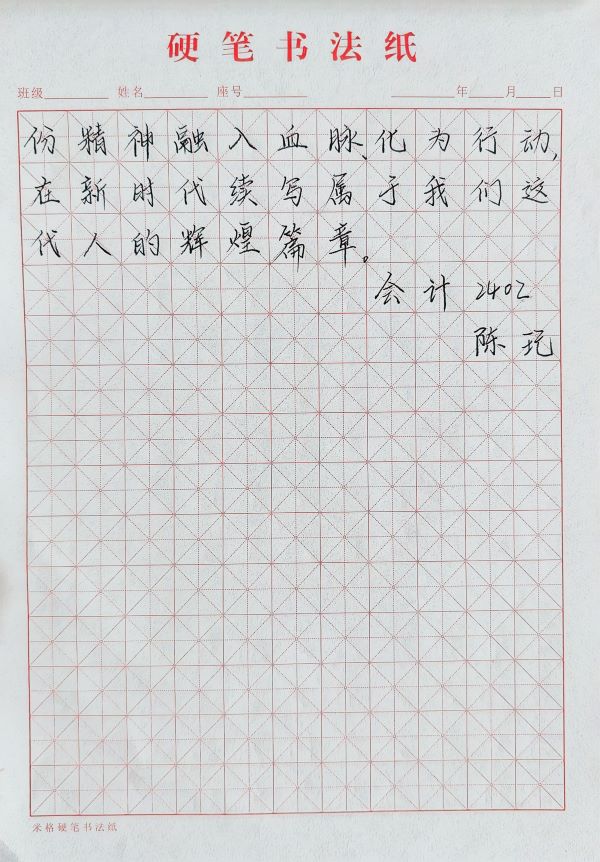 硬笔书法纸
班级 姓名 座号 年 月 日
份精神融入血脉、化为行动,
在新时代续写属于我们这
代人的辉煌篇章。
会计2402
陈玩
米格硬笔书法纸